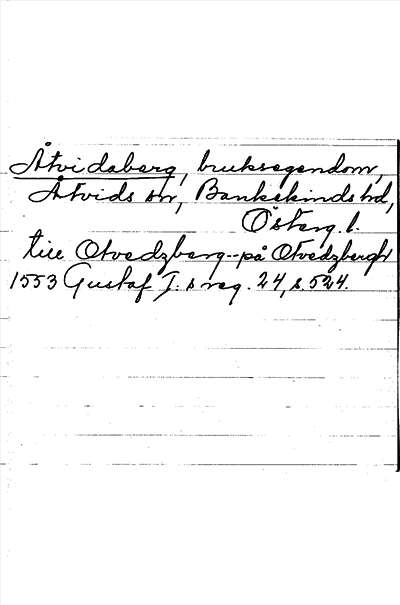 Åtvidaberg, bruksegendom,
Åtvids sn, Bankekinds hd,
Österg. l.
till Otvedzberg--på Otvedzbergh
1553 Gustaf I. s reg. 24, s. 524.